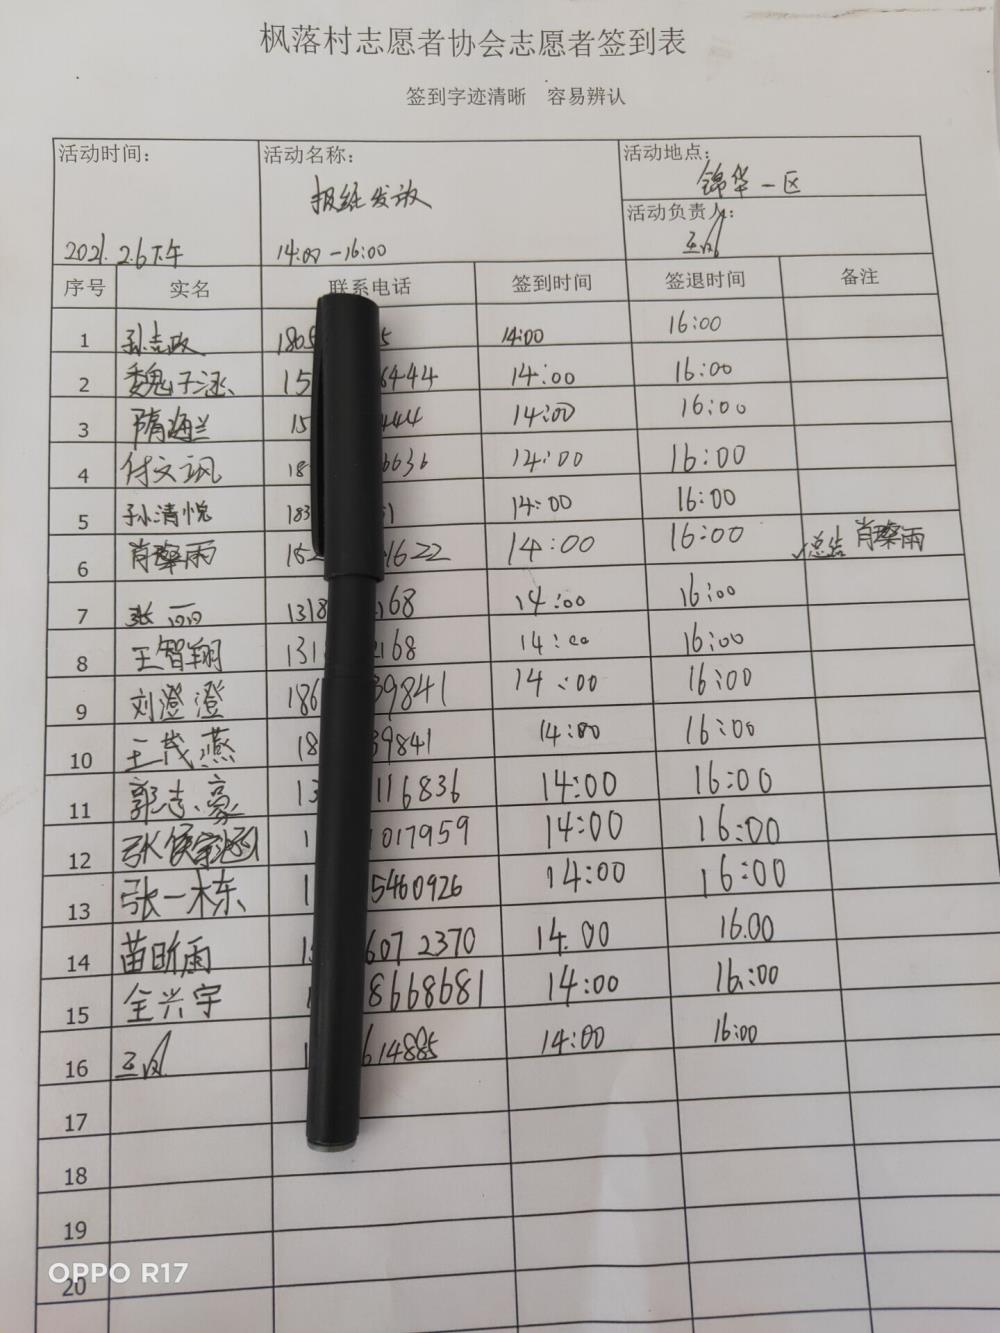 枫落村志愿者协会志愿者签到表
签到字迹清晰 容易辨认
活动时间: 活动名称: 活动地点:
报纸发放 锦华一区
活动负责人:
王凤
2021.2.6下午 14:00-16:00
序号 实名 联系电话 签到时间 签退时间 备注
1 孙志政 1805 5 14:00 16:00
2 魏子涵 15 6444 14:00 16:00
3 隋海兰 15 444 14:00 16:00
4 付文飒 18 6636 14:00 16:00
5 孙清悦 183 1 14:00 16:00
6 肖璨雨 152 1622 14:00 16:00 总结 肖璨雨
7 张丽 1318 168 14:00 16:00
8 王智翔 131 168 14:00 16:00
9 刘澄澄 186 39841 14:00 16:00
10 王茂燕 18 39841 14:00 16:00
11 郭志豪 13 116836 14:00 16:00
12 张 1 1017959 14:00 16:00
13 张一木东 1 5460926 14:00 16:00
14 苗昕雨 15 607 2370 14.00 16.00
15 全兴宇 1 8668681 14:00 16:00
16 王凤 1 614885 14:00 16:00
17
18
19
20
OPPO R17